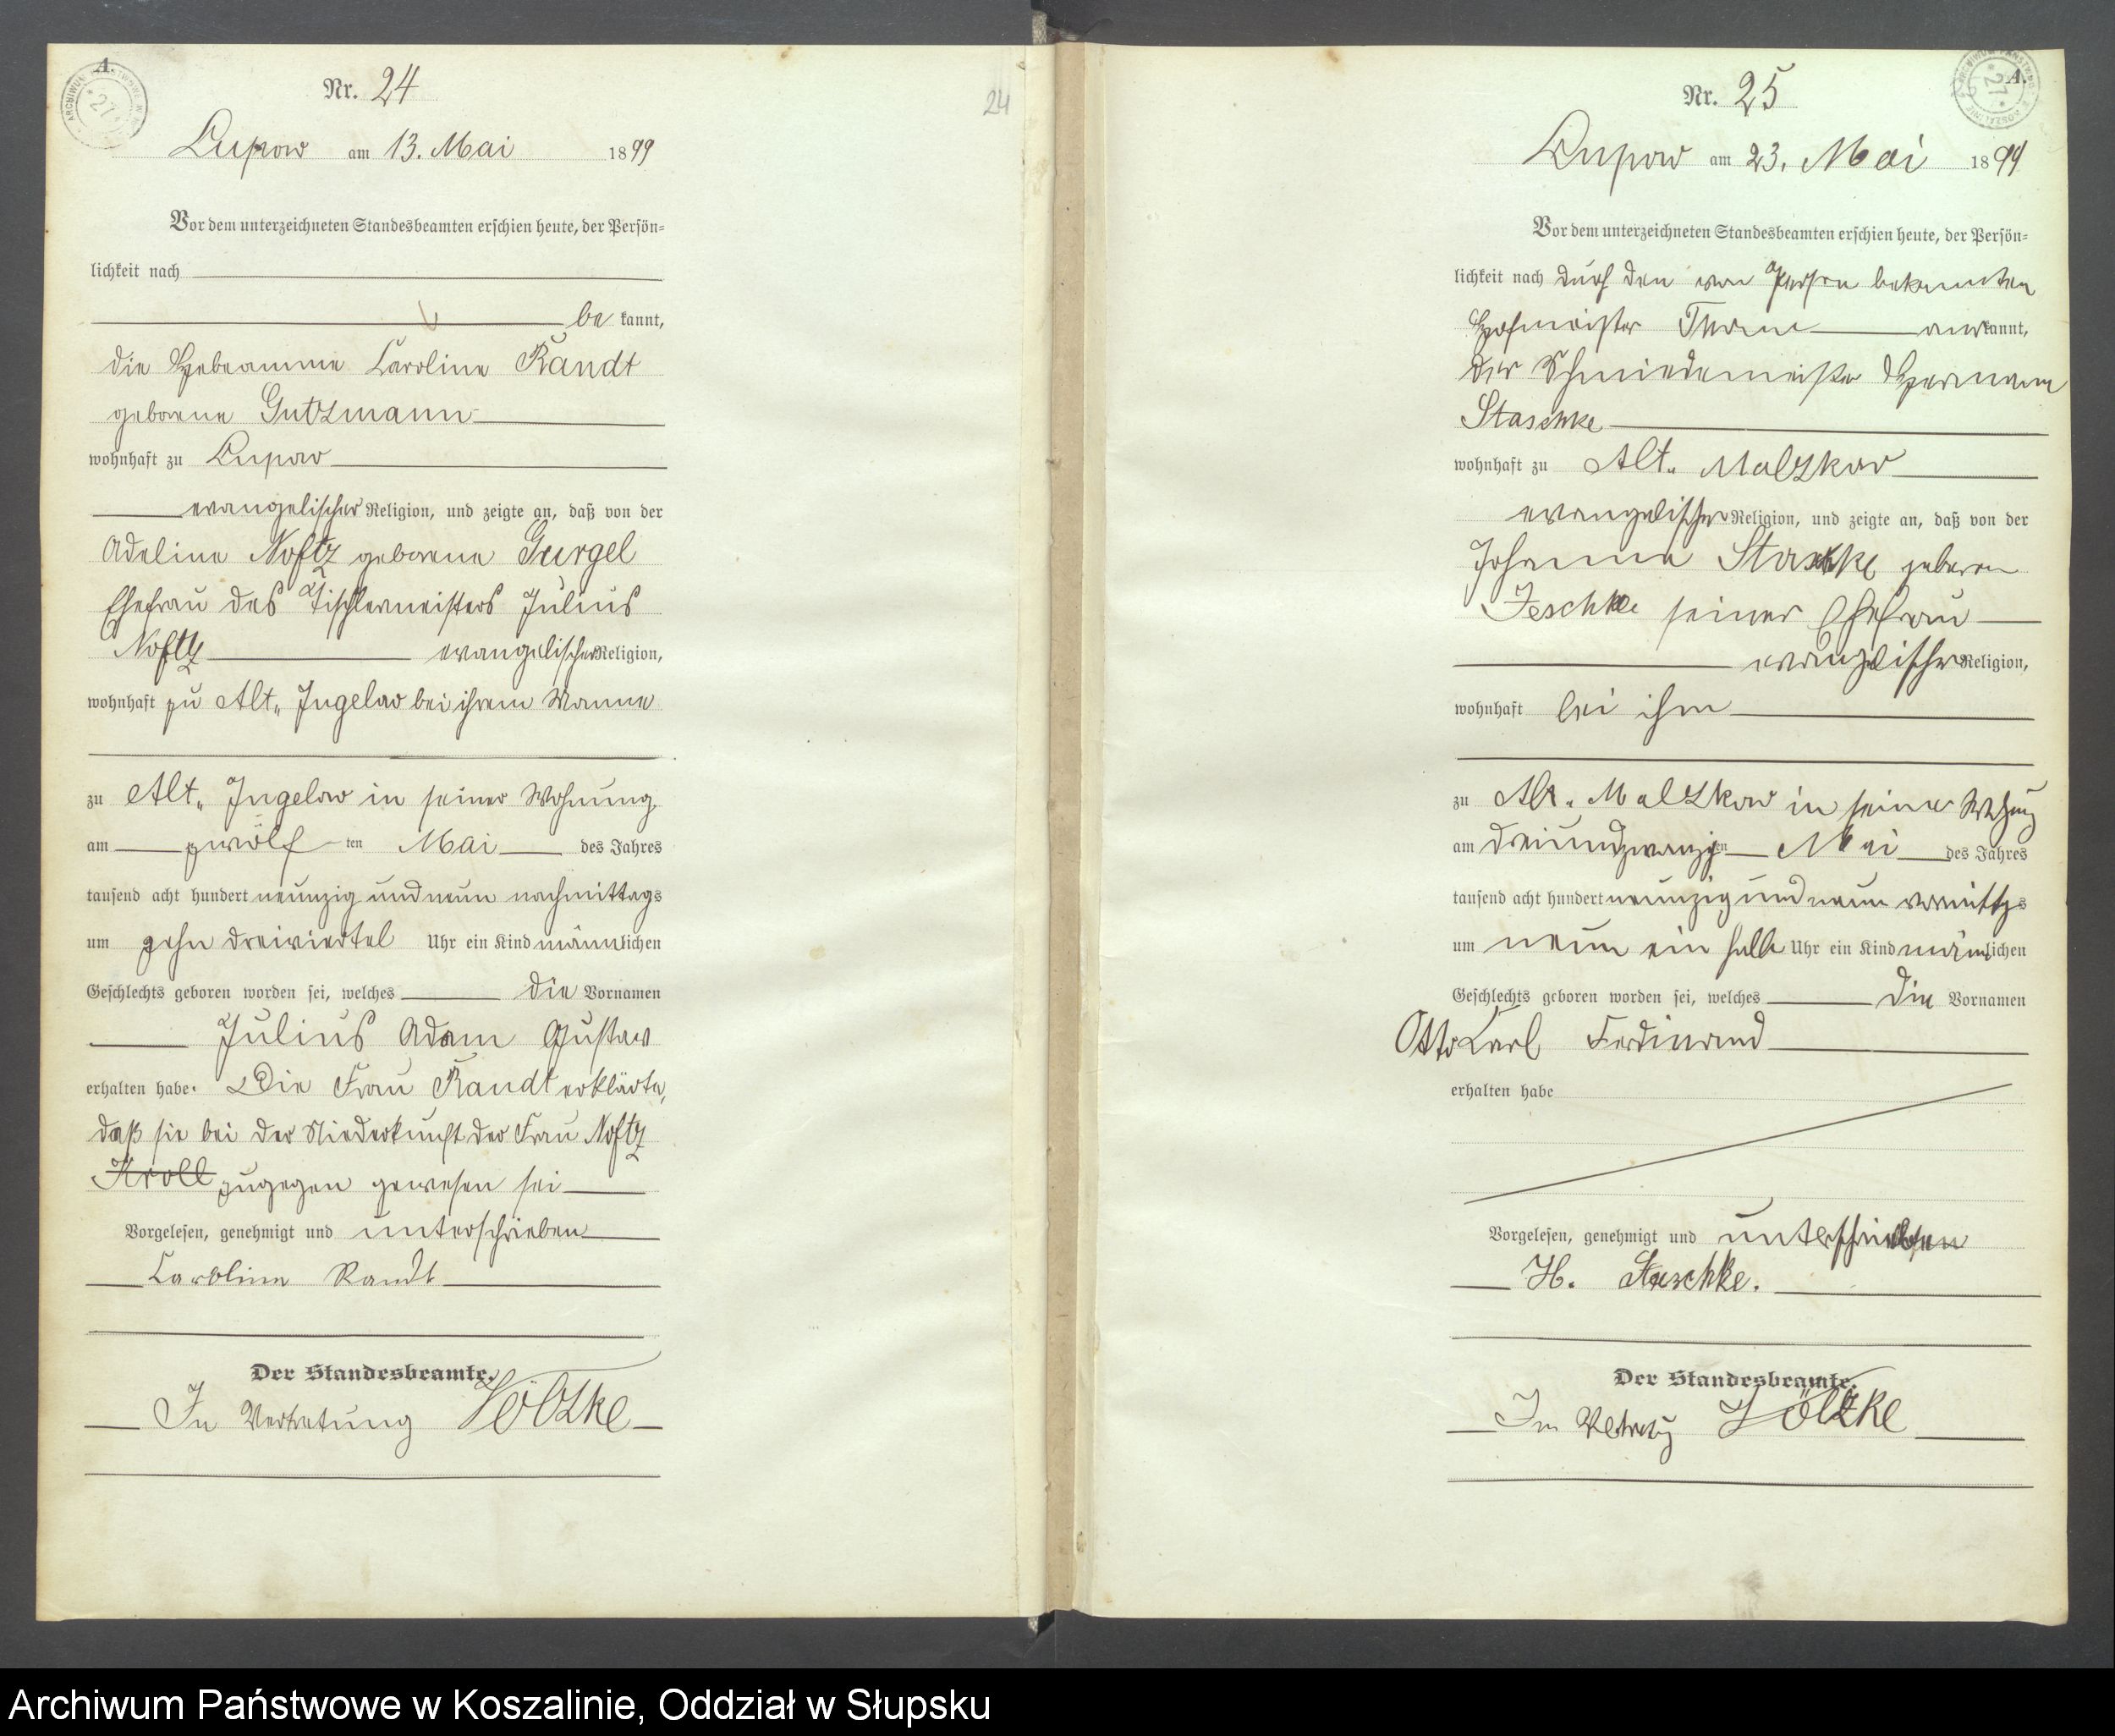 A.
Nr. 24
Lupow am 13. Mai 1899
Vor dem unterzeichneten Standesbeamten erschien heute, der Persön-
lichkeit nach
be kannt,
die Hebeamme Caroline Randt
geborene Gutzmann
wohnhaft zu Lupow
evangelischer Religion, und zeigte an, daß von der
Adeline Noftz geborene Gurgel
Ehefrau des Tischlermeisters Julius
Noftz evangelischer Religion,
wohnhaft zu Alt„ Jugelow bei ihrem Manne
zu Alt„ Jugelow in seiner Wohnung
am zwölf ten Mai des Jahres
tausend acht hundert neunzig und neun nachmittags
um zehn dreiviertel Uhr ein Kind männlichen
Geschlechts geboren worden sei, welches die Vornamen
Julius Adam Gustav
erhalten habe. Die Frau Randt erklärte,
daß sie bei der Niederkunft der Frau Noftz
Kroll zugegen gewesen sei
Vorgelesen, genehmigt und unterschrieben
Caroline Randt
Der Standesbeamte.
In Vertretung Völzke
24
A.
Nr. 25
Lupow am 23. Mai 1899
Vor dem unterzeichneten Standesbeamten erschien heute, der Persön-
lichkeit nach durch den von Person bekannten
Hofmeister Thom anerkannt,
der Schmiedemeister Hermann
Staschke
wohnhaft zu Alt„ Malzkow
evangelischer Religion, und zeigte an, daß von der
Johanna Staschke geboren
Jeschke seiner Ehefrau
evangelischer Religion,
wohnhaft bei ihm
zu Alt. Malzkow in seiner Wohnung
am dreiundzwanzigten Mai des Jahres
tausend acht hundert neunzig und neun vormittgs
um neun ein halb Uhr ein Kind männlichen
Geschlechts geboren worden sei, welches die Vornamen
Otto Karl Ferdinand
erhalten habe
Vorgelesen, genehmigt und unterschrieben
H. Staschke.
Der Standesbeamte.
In Vertretung Völzke
Archiwum Państwowe w Koszalinie, Oddział w Słupsku